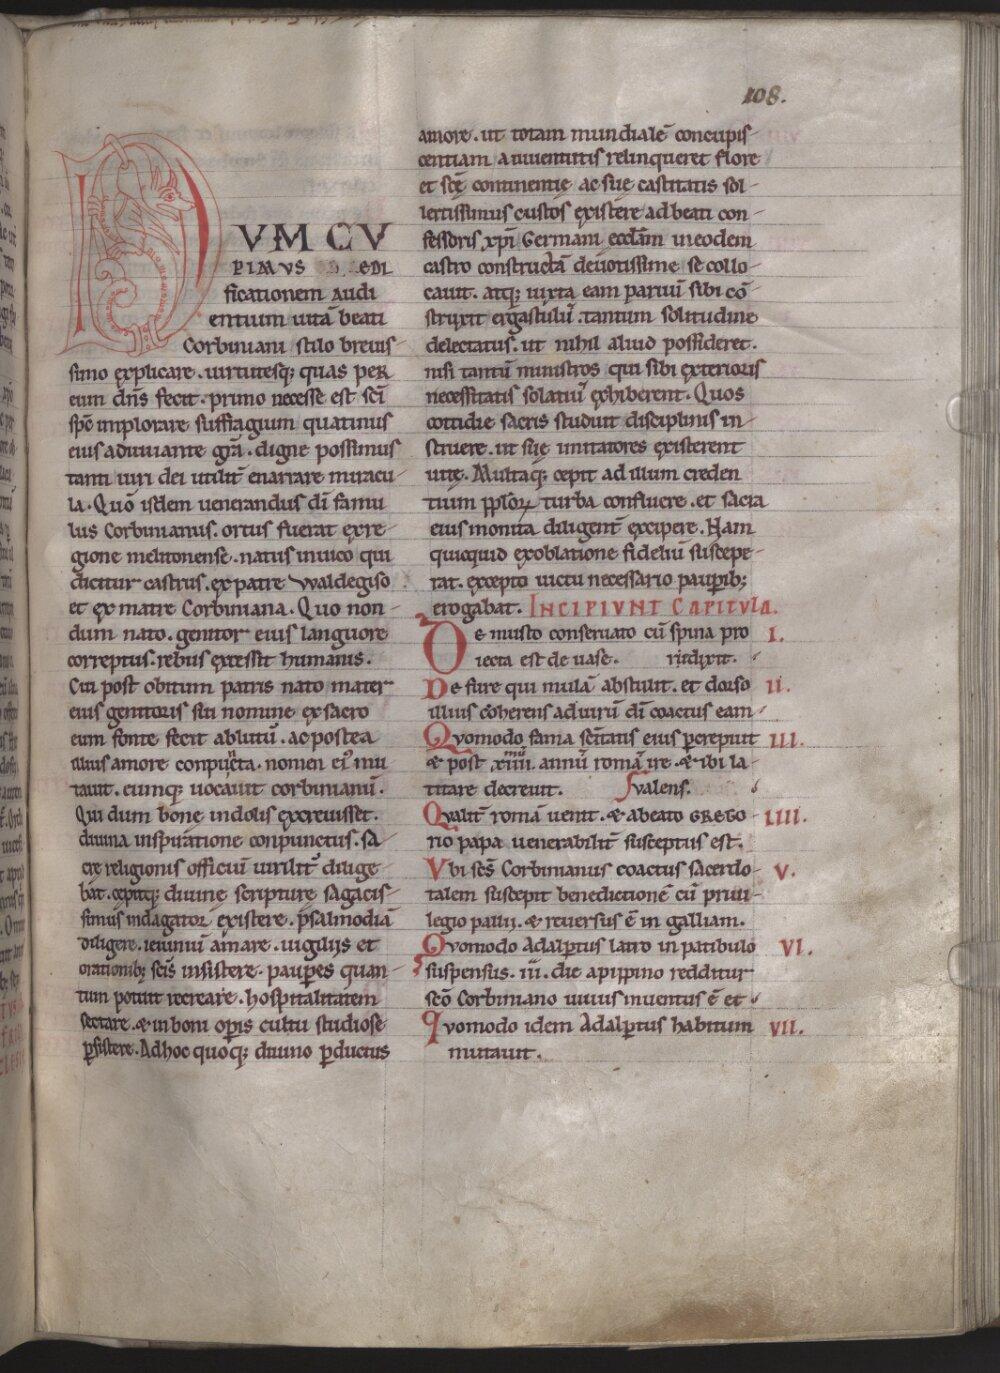 108.
DVM CV
PIMVS EDI
ficationem audi
entium uitā beati
Corbiniani stilo breuis-
simo explicare. uirtutesq; quas PER
eum dn̄s fecit. primo necesse est scī
spc̄ implorare suffragium quatinus
eius adiuuante gr̄a. digne possimus
tanti uiri dei utilit̄ enarrare miracu-
la. Quō isdem uenerandus dī famu
lus Corbinianus. ortus fuerat ex re-
gione melitonense. natus in uico qui
dicitur castrus. ex patre Waldegiso
et ex matre Corbiniana. Quo non-
dum nato. genitor eius languore
correptus. rebus excessit humanis.
Cui post obitum patris nato mater
eius genitoris sui nomine ex sacro
eum fonte fecit ablutū. ac postea
illius amore conpūcta. nomen ei' mu
tauit. eumq; uocauit corbinianū.
Qui dum bonę indolis excreuisset.
diuina inspiratione conpunctus. sa-
crę religionis officiū uirilit̄ dilige-
bat. cępitq; diuinę scripturę sagacis-
simus indagator existere. psalmodiā
diligere. ieiuniū amare. uigiliis et
orationib; scīs insistere. paupes quan-
tum potuit recreare. hospitalitatem
sectare. & in boni opis cultu studiose
psistere. Ad hoc quoq; diuino pductus
amore. ut totam mundialē concupis-
centiam a iuuentutis relinqueret flore
et scę continentię ac suę castitatis sol-
lertissimus custos existere ad beati con-
fessoris xpī Germani eccłam in eodem
castro constructā deuotissime se collo-
cauit. atq; iuxta eam paruū sibi cō-
struxit ergastulū. tantum solitudine
delectatus. ut nihil aliud possideret.
nisi tantū ministros qui sibi exterioris
necessitatis solatiū exhiberent. Quos
cottidie sacris studuit disciplinis in-
struere. ut suę imitatores existerent
uitę. Multaq; cepit ad illum creden
tium pplorꝫ turba confluere. et sacra
eius monita diligent̄ excipere. Nam
quicquid ex oblatione fideliū suscepe-
rat. excepto uictu necessario paupib;
erogabat. INCIPIVNT CAPITVLA.
De musto conseruato cū spina pro I.
iecta est de uase. riidixit.
De fure qui mulā abstulit. et dorso II.
illius cohęrens ad uirū dī coactus eam
Quomodo fama sc̄itatis eius percrepuit III.
& post xiiii. annū romā ire. & ibi la-
titare decreuit. ualens.
Qualit̄ romā uenit. & a beato GREGO- IIII.
rio papa uenerabilit̄ susceptus est.
Vbi scs̄ Corbinianus coactus sacerdo- V.
talem suscepit benedictionē cū priui-
legio pallii. & reuersus ē in galliam.
Quomodo Adalptus latro in patibulo VI.
suspensus. iii. die a pippino redditur
scō Corbiniano uiuus inuentus ē et
Quomodo idem Adalptus habitum VII.
mutauit.